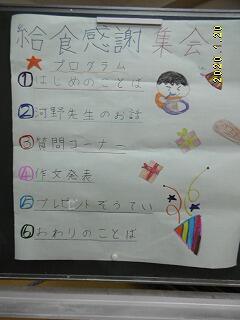 給食感謝集会
プログラム
①はじめのことば
②河野先生のお話
③質問コーナー
④作文発表
⑤プレゼントぞうてい
⑥おわりのことば
2020 1.20